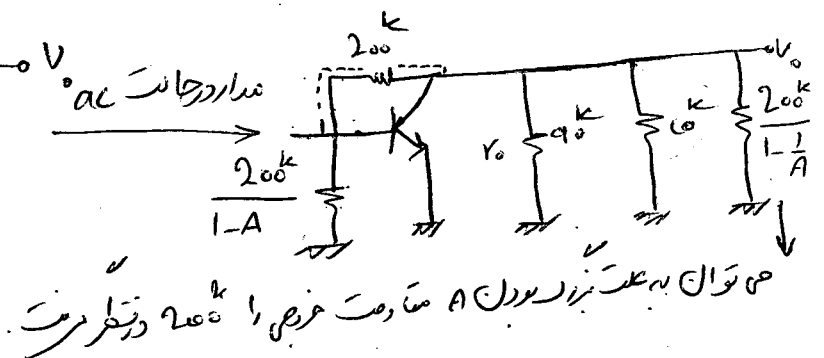 V₀
مدار در حالت ac
200k
V₀
200k / 1-A
r₀
90k
50k
200k / 1-1/A
می توان به علت بزرگ بودن A مقاومت خروجی را 200k در نظر گرفت.